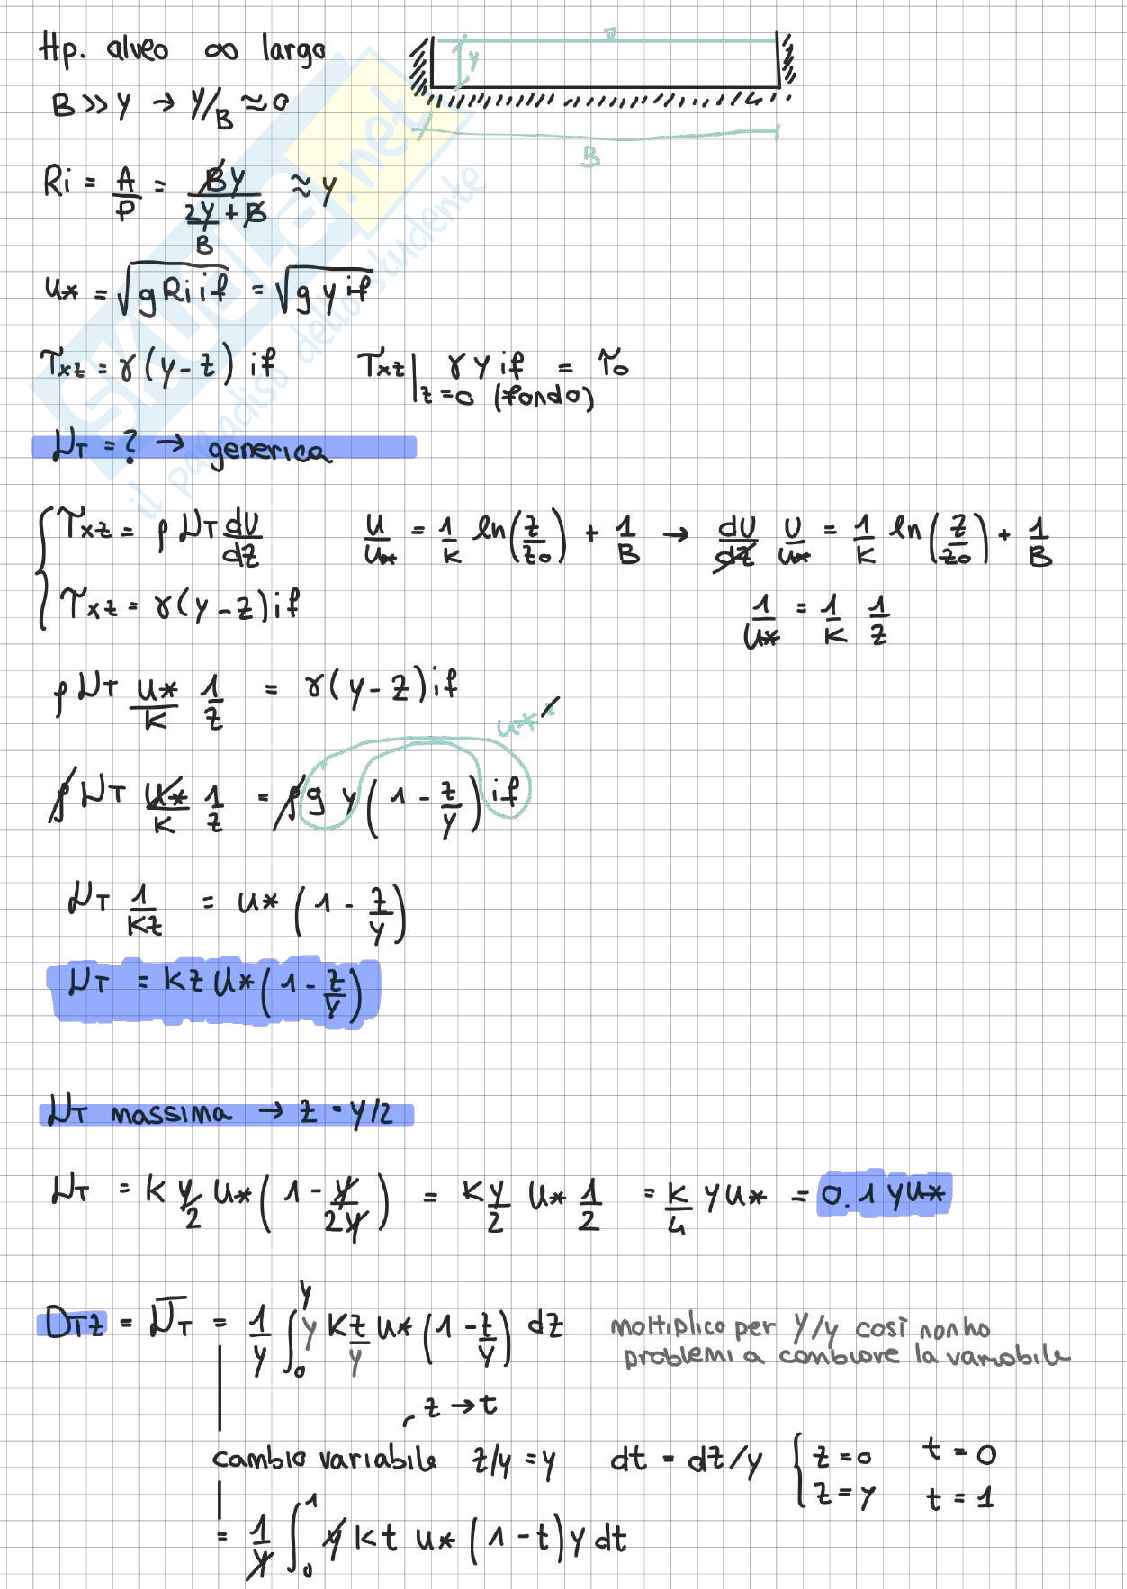 Hp. alveo ∞ largo
y
B >> y → y/B ≈ 0
B
Ri = A/P = By/(2y/B + B) ≈ y
u* = √(g Ri if) = √(g y if)
τxz = γ(y-z) if    τxz|z=0 (fondo) γ y if = τo
νT = ? → generica
{ τxz = ρ νT dU/dz    u/u* = 1/k ln(z/zo) + 1/B → dU/dz U/u* = 1/k ln(z/zo) + 1/B
τxz = γ(y-z) if    1/u* = 1/k 1/z
ρ νT u*/k 1/z = γ(y-z) if
u*²
ρ νT u*/k 1/z = ρ g y (1 - z/y) if
νT 1/kz = u* (1 - z/y)
νT = k z u* (1 - z/y)
νT massima → z = y/2
νT = k y/2 u* (1 - y/2y) = k y/2 u* 1/2 = k/4 y u* = 0.1 y u*
DTz = ν̅T = 1/y ∫₀^y y k z/y u* (1 - z/y) dz    moltiplico per y/y così non ho
problemi a cambiare la variabile
z → t
cambio variabile z/y = y    dt = dz/y { z = 0    t = 0
z = y    t = 1
= 1/y ∫₀^1 y k t u* (1 - t) y dt
skuola.net
il paradiso dello studente